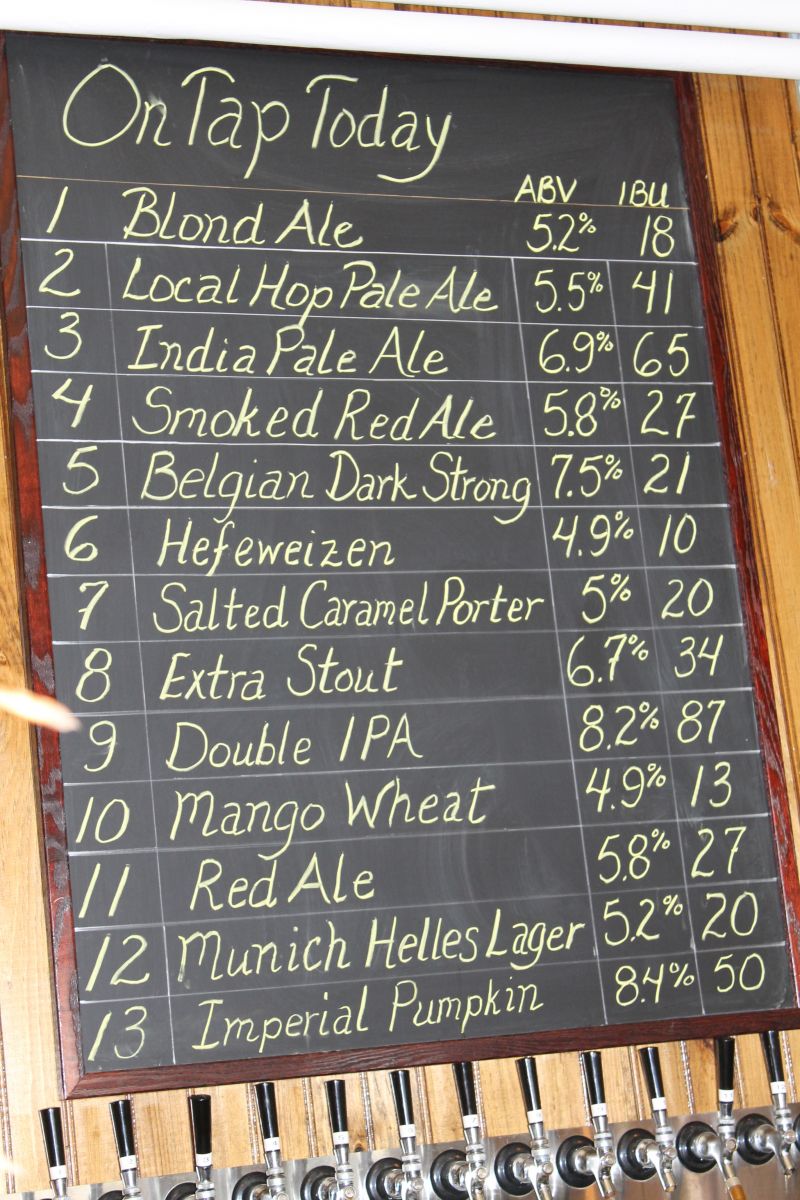 On Tap Today
ABV IBU
1 Blond Ale 5.2% 18
2 Local Hop Pale Ale 5.5% 41
3 India Pale Ale 6.9% 65
4 Smoked Red Ale 5.8% 27
5 Belgian Dark Strong 7.5% 21
6 Hefeweizen 4.9% 10
7 Salted Caramel Porter 5% 20
8 Extra Stout 6.7% 34
9 Double IPA 8.2% 87
10 Mango Wheat 4.9% 13
11 Red Ale 5.8% 27
12 Munich Helles Lager 5.2% 20
13 Imperial Pumpkin 8.4% 50